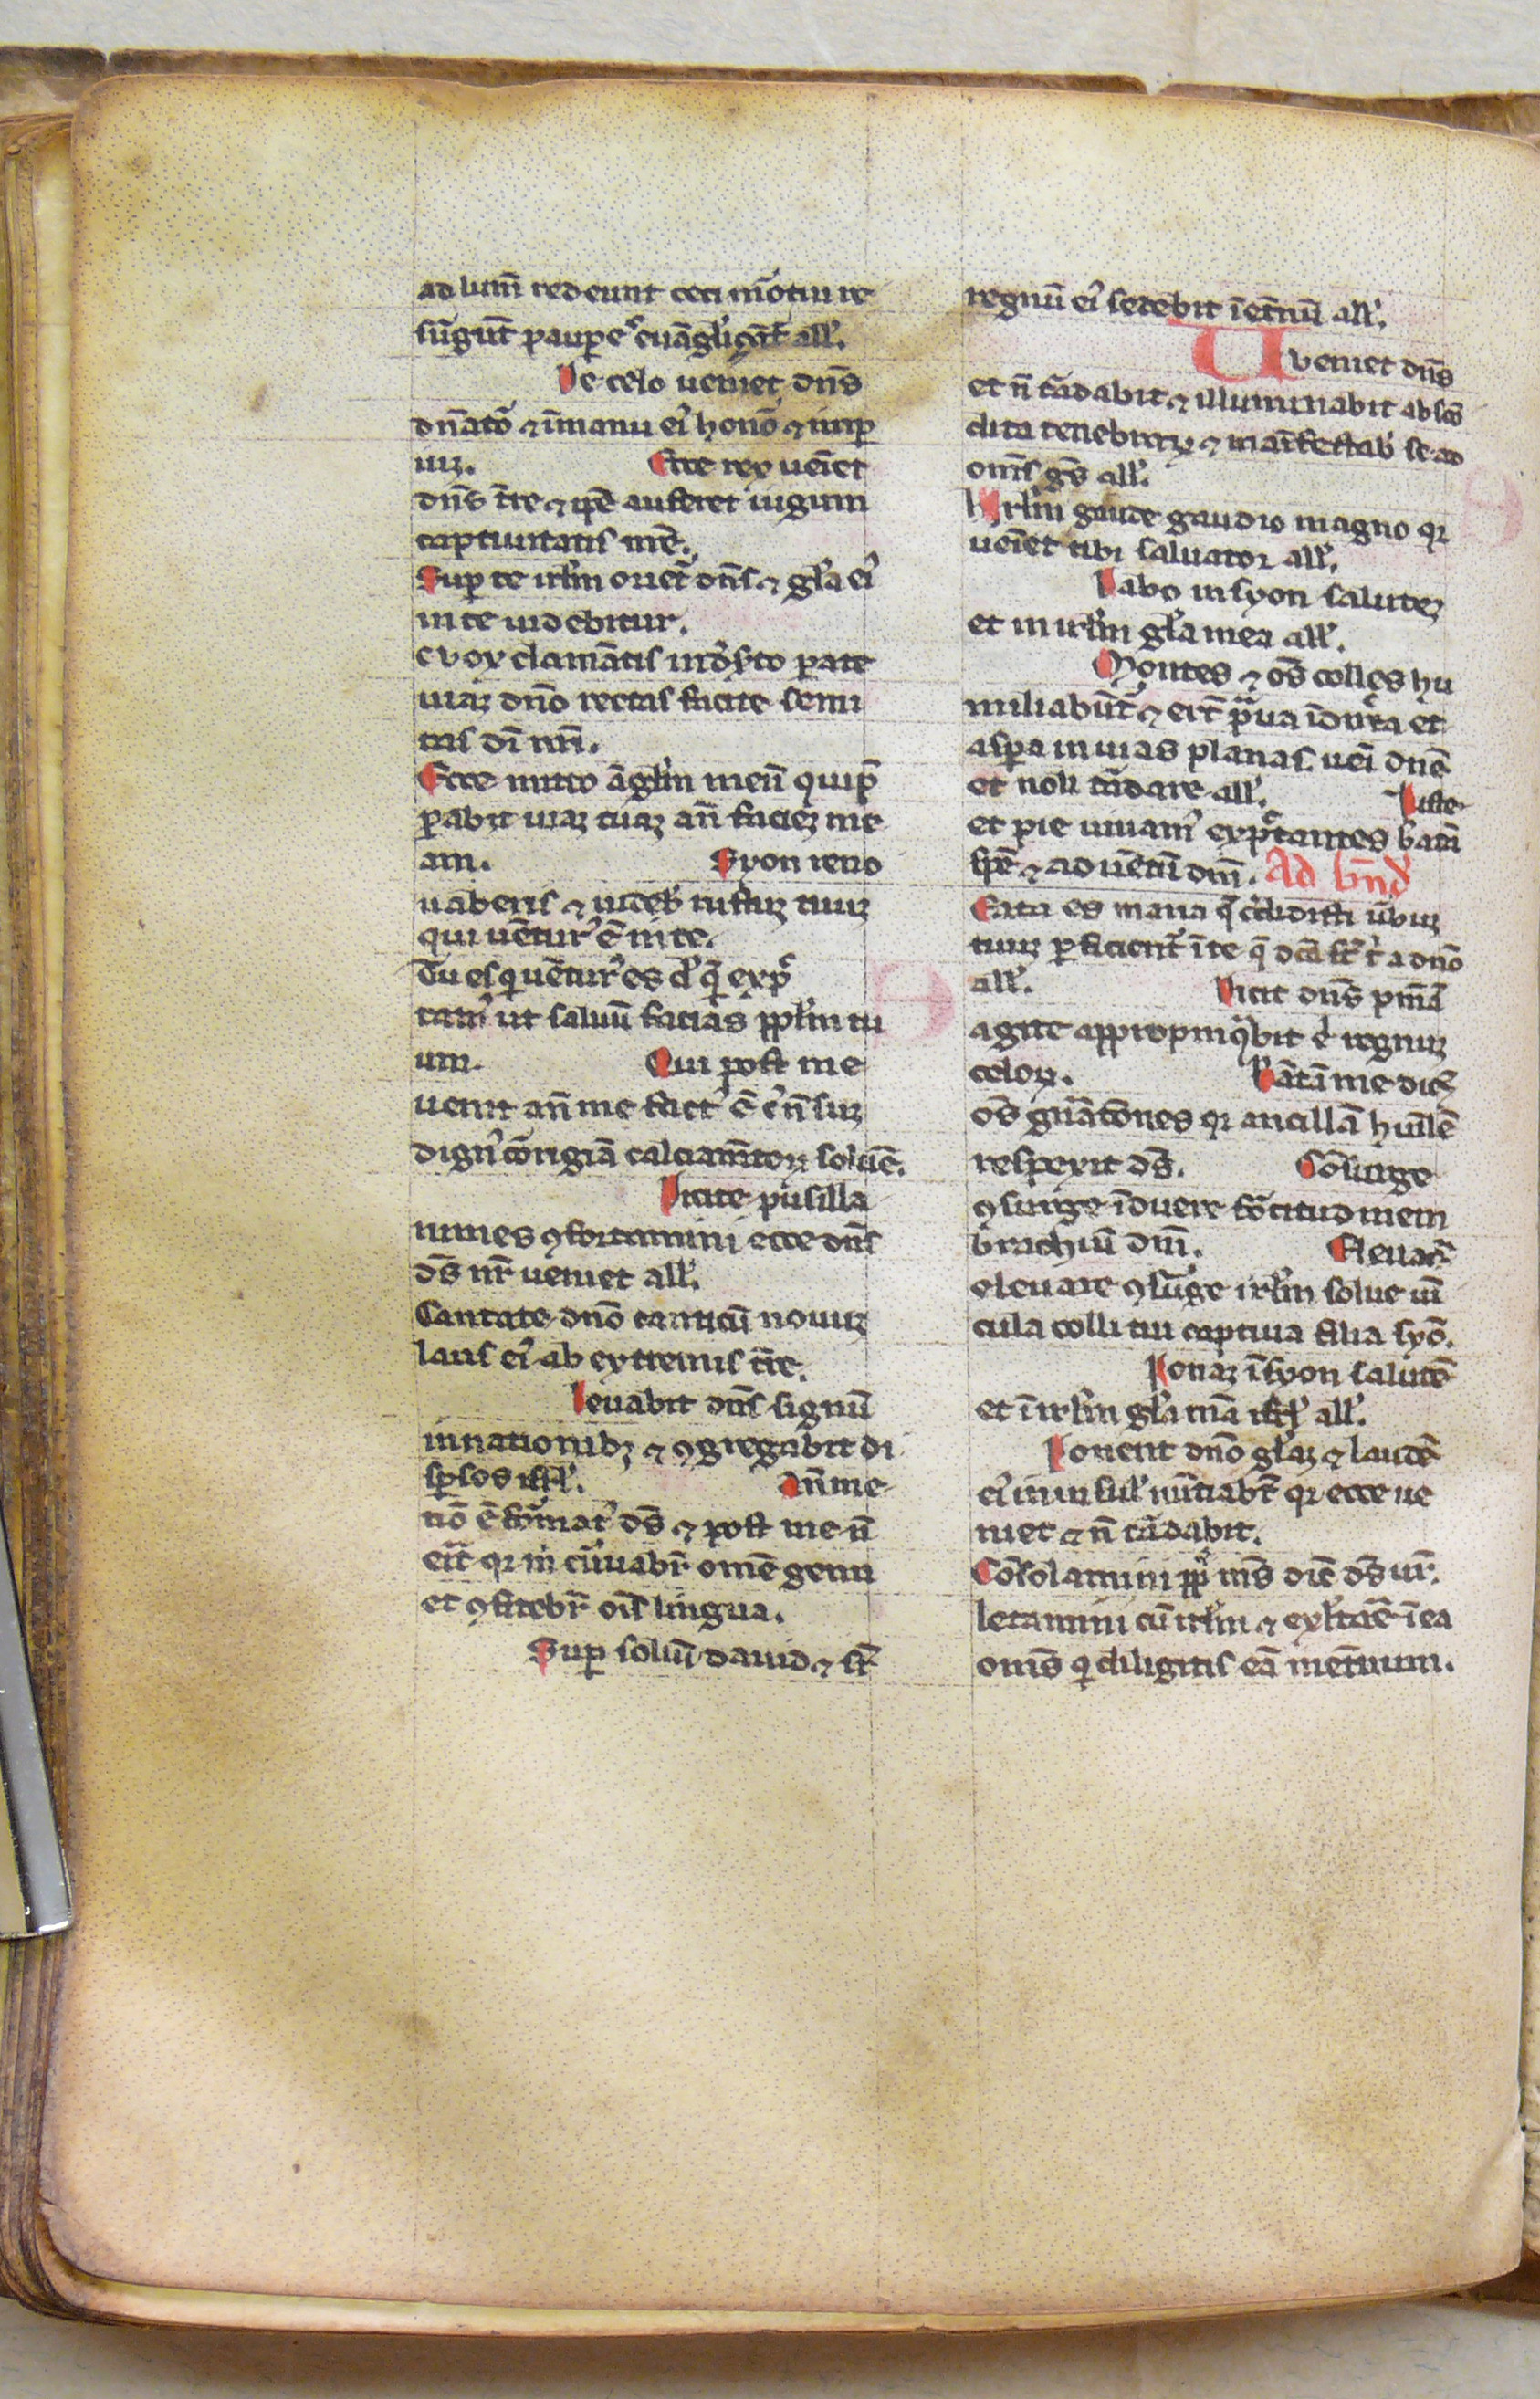 ad lum̄ redeunt ceci mōtui re
sūgūt paupes euāgliçāt all'.
De celo ueniet dn̄s
dn̄atō ⁊ ī manu ei' honō ⁊ imp
iuꝫ. Ecce rex ueīet
dn̄s t̄re ⁊ ip̄e auferet iugum
captiuitatis nr̄e.
Sup te irlm̄ oriet' dn̄s ⁊ gl'a ei'
in te uidebitur.
vox clamātis in d'sto parate
uiaꝫ dn̄o rectas facite semi
tas dī nr̄i.
Ecce mitto āglm̄ meū qui p̄
parabit uiaꝫ tuaꝫ an̄ facieꝫ me
am. Syon reno
uaberis ⁊ uideb' iustuꝫ tuuꝫ
qui uētur' ē in te.
Tu es qi uētur' es d' quē exp̄c
tam' ut saluū facias pplm̄ tu
um. Qui post me
uenit an̄ me fact' ē c' n̄ suꝫ
dign' corrigiā calciamtoꝝ solue.
Dicite pusilla
nimes ꝯfortamini ecce dn̄s
ds̄ nr̄ ueniet all'.
Cantate dn̄o canticū nouuꝫ
laus ei' ab extremis t̄re.
Leuabit dn̄s signū
in nationibꝫ ⁊ ꝯgregabit di
spsos isrl'. An̄ me
nō ē formar' ds̄ ⁊ post me n̄
erit qr m̄ curuabr̄ omē genu
et ꝯfitebr̄ ois lingua.
Sup soliū dauid ⁊ sr̄
regnū ei' sedebit ī et'nū all'.
veniet dn̄s
et n̄ tādabit ⁊ illuminabit abscō
dita tenebraꝝ ⁊ māifestab' se ad
omīs gēs all'.
Irlm̄ gaude gaudio magno qr
ueīet tibi saluator all'.
Dabo in syon saluteꝫ
et in irlm̄ gl'a mea all'.
Montes ⁊ os̄ colles hu
miliabūt' ⁊ er̄t praua ī dirca et
aspa in uias planas. ueī dn̄e
et noli tādare all'. Iuste
et pie uiuam' exp̄ctantes batā
spē ⁊ aduētū dn̄i. Ad bn̄d'
Bata es maria q̄ c'didisti ūbuꝫ
tuuꝫ pficient' ī te q̄ dc̄a st̄ t' a dn̄o
all'. Dicit dn̄s pniā
agite appropinqabit e' regnuꝫ
celoꝝ. Bātā me dic̄
os̄ gnatōnes qr ancillā huīlē
respexit ds̄. Cōsurge
ꝯsurge īduere fortitudinem
brachiū dn̄i. Eleuare
eleuare ꝯsurge irlm̄ solue uī
cula colli tui captiua filia syō.
Ponaꝫ ī syon salutē
et ī irlm̄ gl'a mā isrl' all'.
Ponent dn̄o gl'aꝫ ⁊ laudē
ei' in insul' nūtiabt' qr ecce ue
niet ⁊ n̄ tādabit.
Cōsolamini pp' ms̄ dic̄ ds̄ ur̄.
letamini cū irlm̄ ⁊ exltate ī ea
oms̄ qi diligitis eā inet'num.